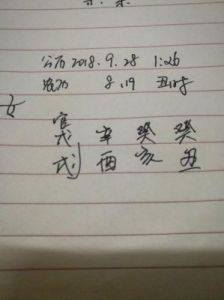 公历 2018.9.28 1:26
农历 8.19 丑时
女
戊 辛 癸 癸
戌 酉 亥 丑